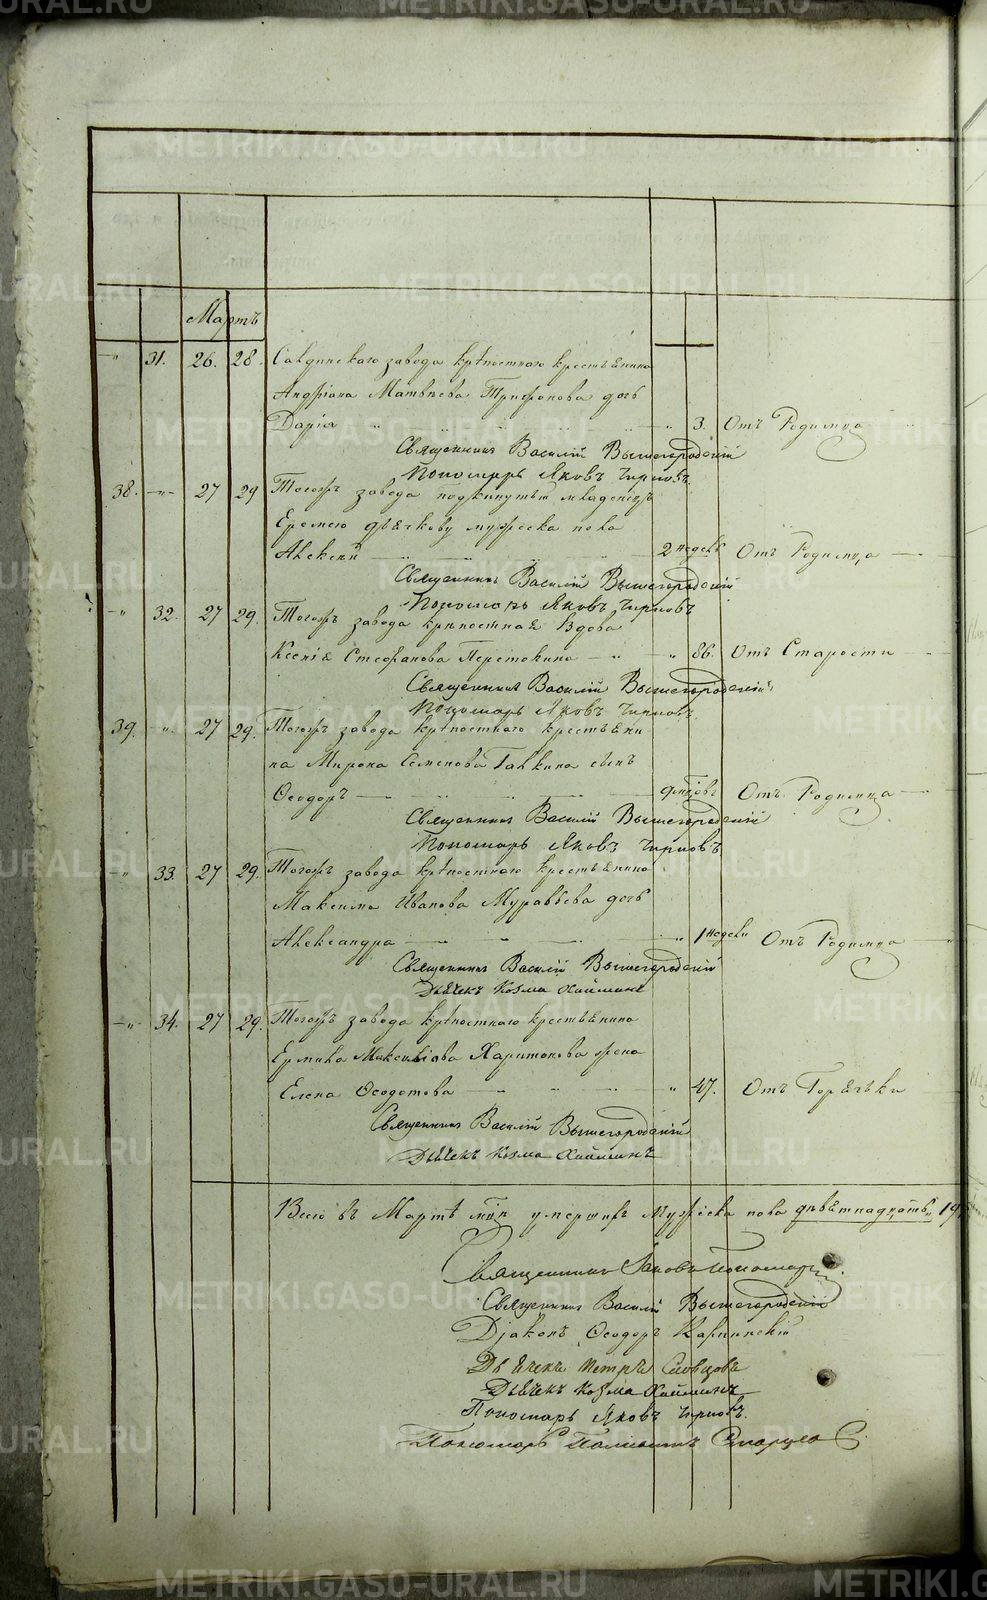 Мартъ
31. 26. 28. Салдинскаго завода крѣпостнаго крестьянина
Андріана Матвѣева Трифонова дочь
Дарія 3. Отъ Родимца
Священникъ Василій Вышегородскій
Пономарь Яковъ Чирковъ
38. 27 29 Тогожъ завода подкинутый младенецъ
Еремею Дьячкову мужеска пола
Алексій 2 недель Отъ Родимца
Священникъ Василій Вышегородскій
Пономарь Яковъ Чирковъ
32. 27 29. Тогожъ завода крѣпостная вдова
Ксенія Стефанова 86. Отъ Старости
Священникъ Василій Вышегородскій
Пономарь Яковъ Чирковъ
39. 27 29. Тогожъ завода крѣпостнаго крестьяни
на Мирона Семенова Галкина сынъ
Ѳеодоръ Отъ Родимца
Священникъ Василій Вышегородскій
Пономарь Яковъ Чирковъ
33. 27 29. Тогожъ завода крѣпостнаго крестьянина
Максима Иванова Муравьева дочь
Александра 1 недели Отъ Родимца
Священникъ Василій Вышегородскій
Дьячекъ Козма
34. 27 29. Тогожъ завода крѣпостнаго крестьянина
Ермила Харитонова жена
Елена Ѳеодотова 47. Отъ Горячки
Священникъ Василій Вышегородскій
Дьячекъ Козма
Всего въ Мартѣ умершихъ Мужеска пола девятнадцать 19
Священникъ Іаковъ Пономаревъ
Священникъ Василій Вышегородскій
Діаконъ Ѳеодоръ Карпинскій
Дьячекъ Петръ Словцовъ
Дьячекъ Козма
Пономарь Яковъ Чирковъ.
Пономарь
METRIKI.GASO-URAL.RU